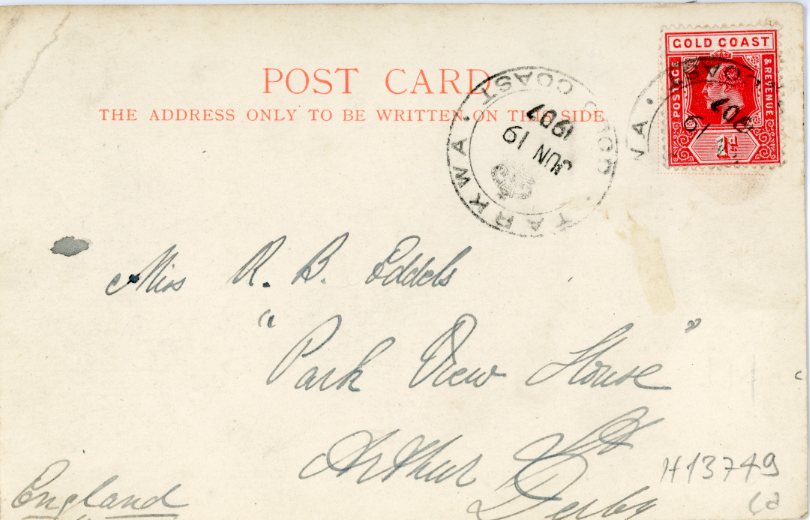 POST CARD
THE ADDRESS ONLY TO BE WRITTEN ON THIS SIDE
GOLD COAST
POSTAGE
& REVENUE
1D
TARKWA · GOLD COAST ·
JUN 19
1907
WA · COAST
19
1907
Miss R. B. Eddels
"Park View House"
Arthur St
Derby
England
H13749